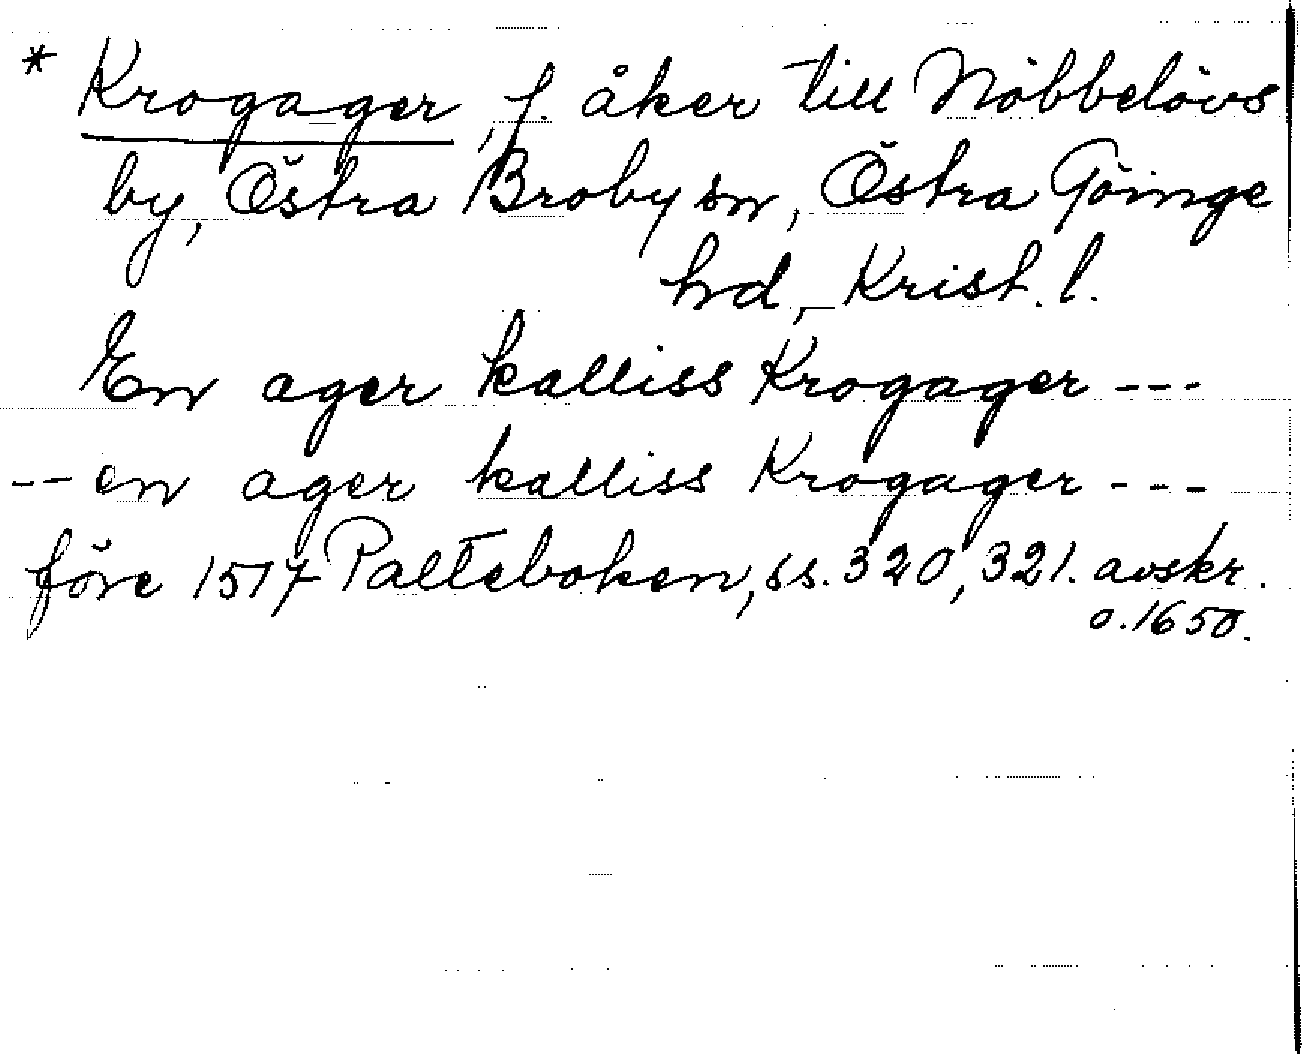 * Krogager, f. åker till Nöbbelövs
by, Östra Broby sn, Östra Göinge
hd, Krist. l.
En ager kalliss Krogager ---
-- en ager kalliss Krogager ---
före 1517 Palteboken, ss. 320, 321. avskr.
o. 1650.